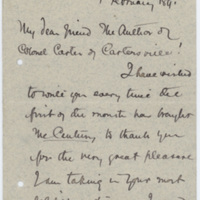 February 1891.
My dear friend The Author of
Colonel Carter of Cartersville!
I have wished
to write you every time the
first of the month has brought
The Century, to thank you
for the very great pleasure
I am taking in your most